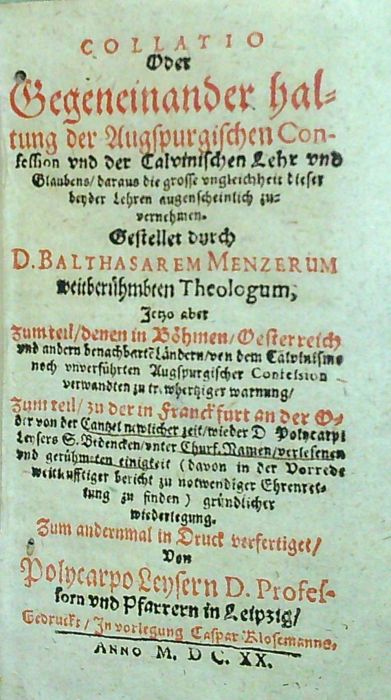 COLLATIO
Oder
Gegeneinander hal-
tung der Augspurgischen Con-
fession vnd der Calvinischen Lehr vnd
Glaubens/ daraus die grosse vngleichheit dieser
beyder Lehren augenscheinlich zu-
vernehmen.
Gestellet durch
D. BALTHASAREM MENZERUM
weitberühmbten Theologum,
Jetzo aber
Zum teil/ denen in Böhmen/ Oesterreich
vnd andern benachbartẽ Ländern/ von dem Calvinismo
noch vnverführten Augspurgischer Confession
verwandten zu trewhertziger warnung/
Zum teil/ zu der in Franckfurt an der O-
der von der Cantzel newlicher zeit/ wieder D Polycarpi
Leysers S. Bedencken/ vnter Churf. Namen/ verlesenen
vnd gerühmten einigkeit (davon in der Vorrede
weitleufftiger bericht zu notwendiger Ehrenret-
tung zu finden) gründlicher
wiederlegung.
Zum andernmal in Druck verfertiget/
Von
Polycarpo Leysern D. Profes-
sorn vnd Pfarrern in Leipzig/
Gedruckt/ In vorlegung Caspar Klosemanns.
ANNO M. DC. XX.